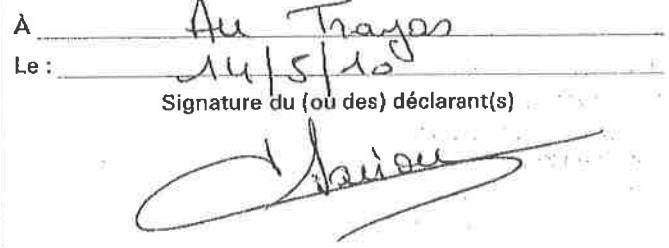 À Au Trayas
Le : 14/5/10
Signature du (ou des) déclarant(s)